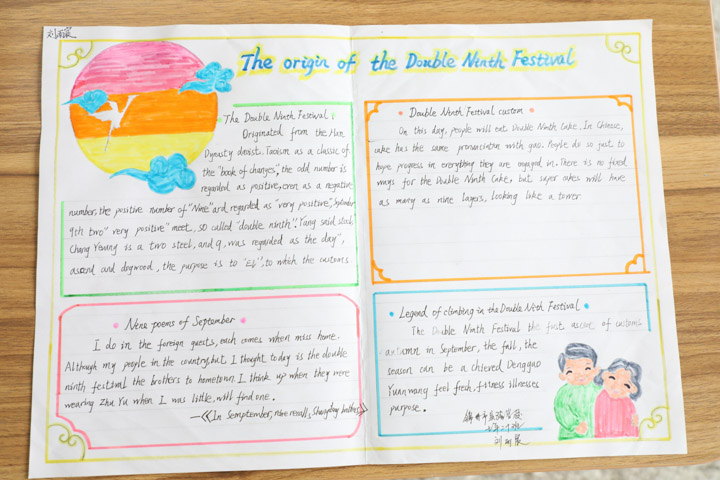 The origin of the Double Ninth Festival
The Double Ninth Festival
Originated from the Han
Dynasty doist. Taoism as a classic of
the "book of changes", the odd number is
regarded as positive, even as a negative
number, the positive number of "Nine" and regarded as "very positive",
9th two "very positive" meet, so called "double ninth", Yang said
Chang Yeung is a two steel, and 9, was regarded as the day",
ascend and dogwood, the purpose is to to which the customs
Double Ninth Festival custom
On this day, people will eat Double Ninth Cake. In Chinese,
cake has the same pronunciation with gao. People do so just to
hope progress in everything they are engaged in. There is no fixed
ways for the Double Ninth Cake, but super cakes will have
as many as nine layers, looking like a tower
Nine poems of September
I do in the foreign guests, each comes when miss home.
Although my people in the country, but I thought today is the double
ninth festival the brothers to hometown. I think up when they were
wearing Zhu Yu when I was little, will find one.
—《In Semptember, nine recalls, Shangdong brothers》
Legend of climbing in the Double Nith Festival
The Double Ninth Festival the first ascen of customs
autumn in September, the fall, the
season can be a chieved Dengqao
Yuanwang feel fresh, fitness illnesses
purpose.